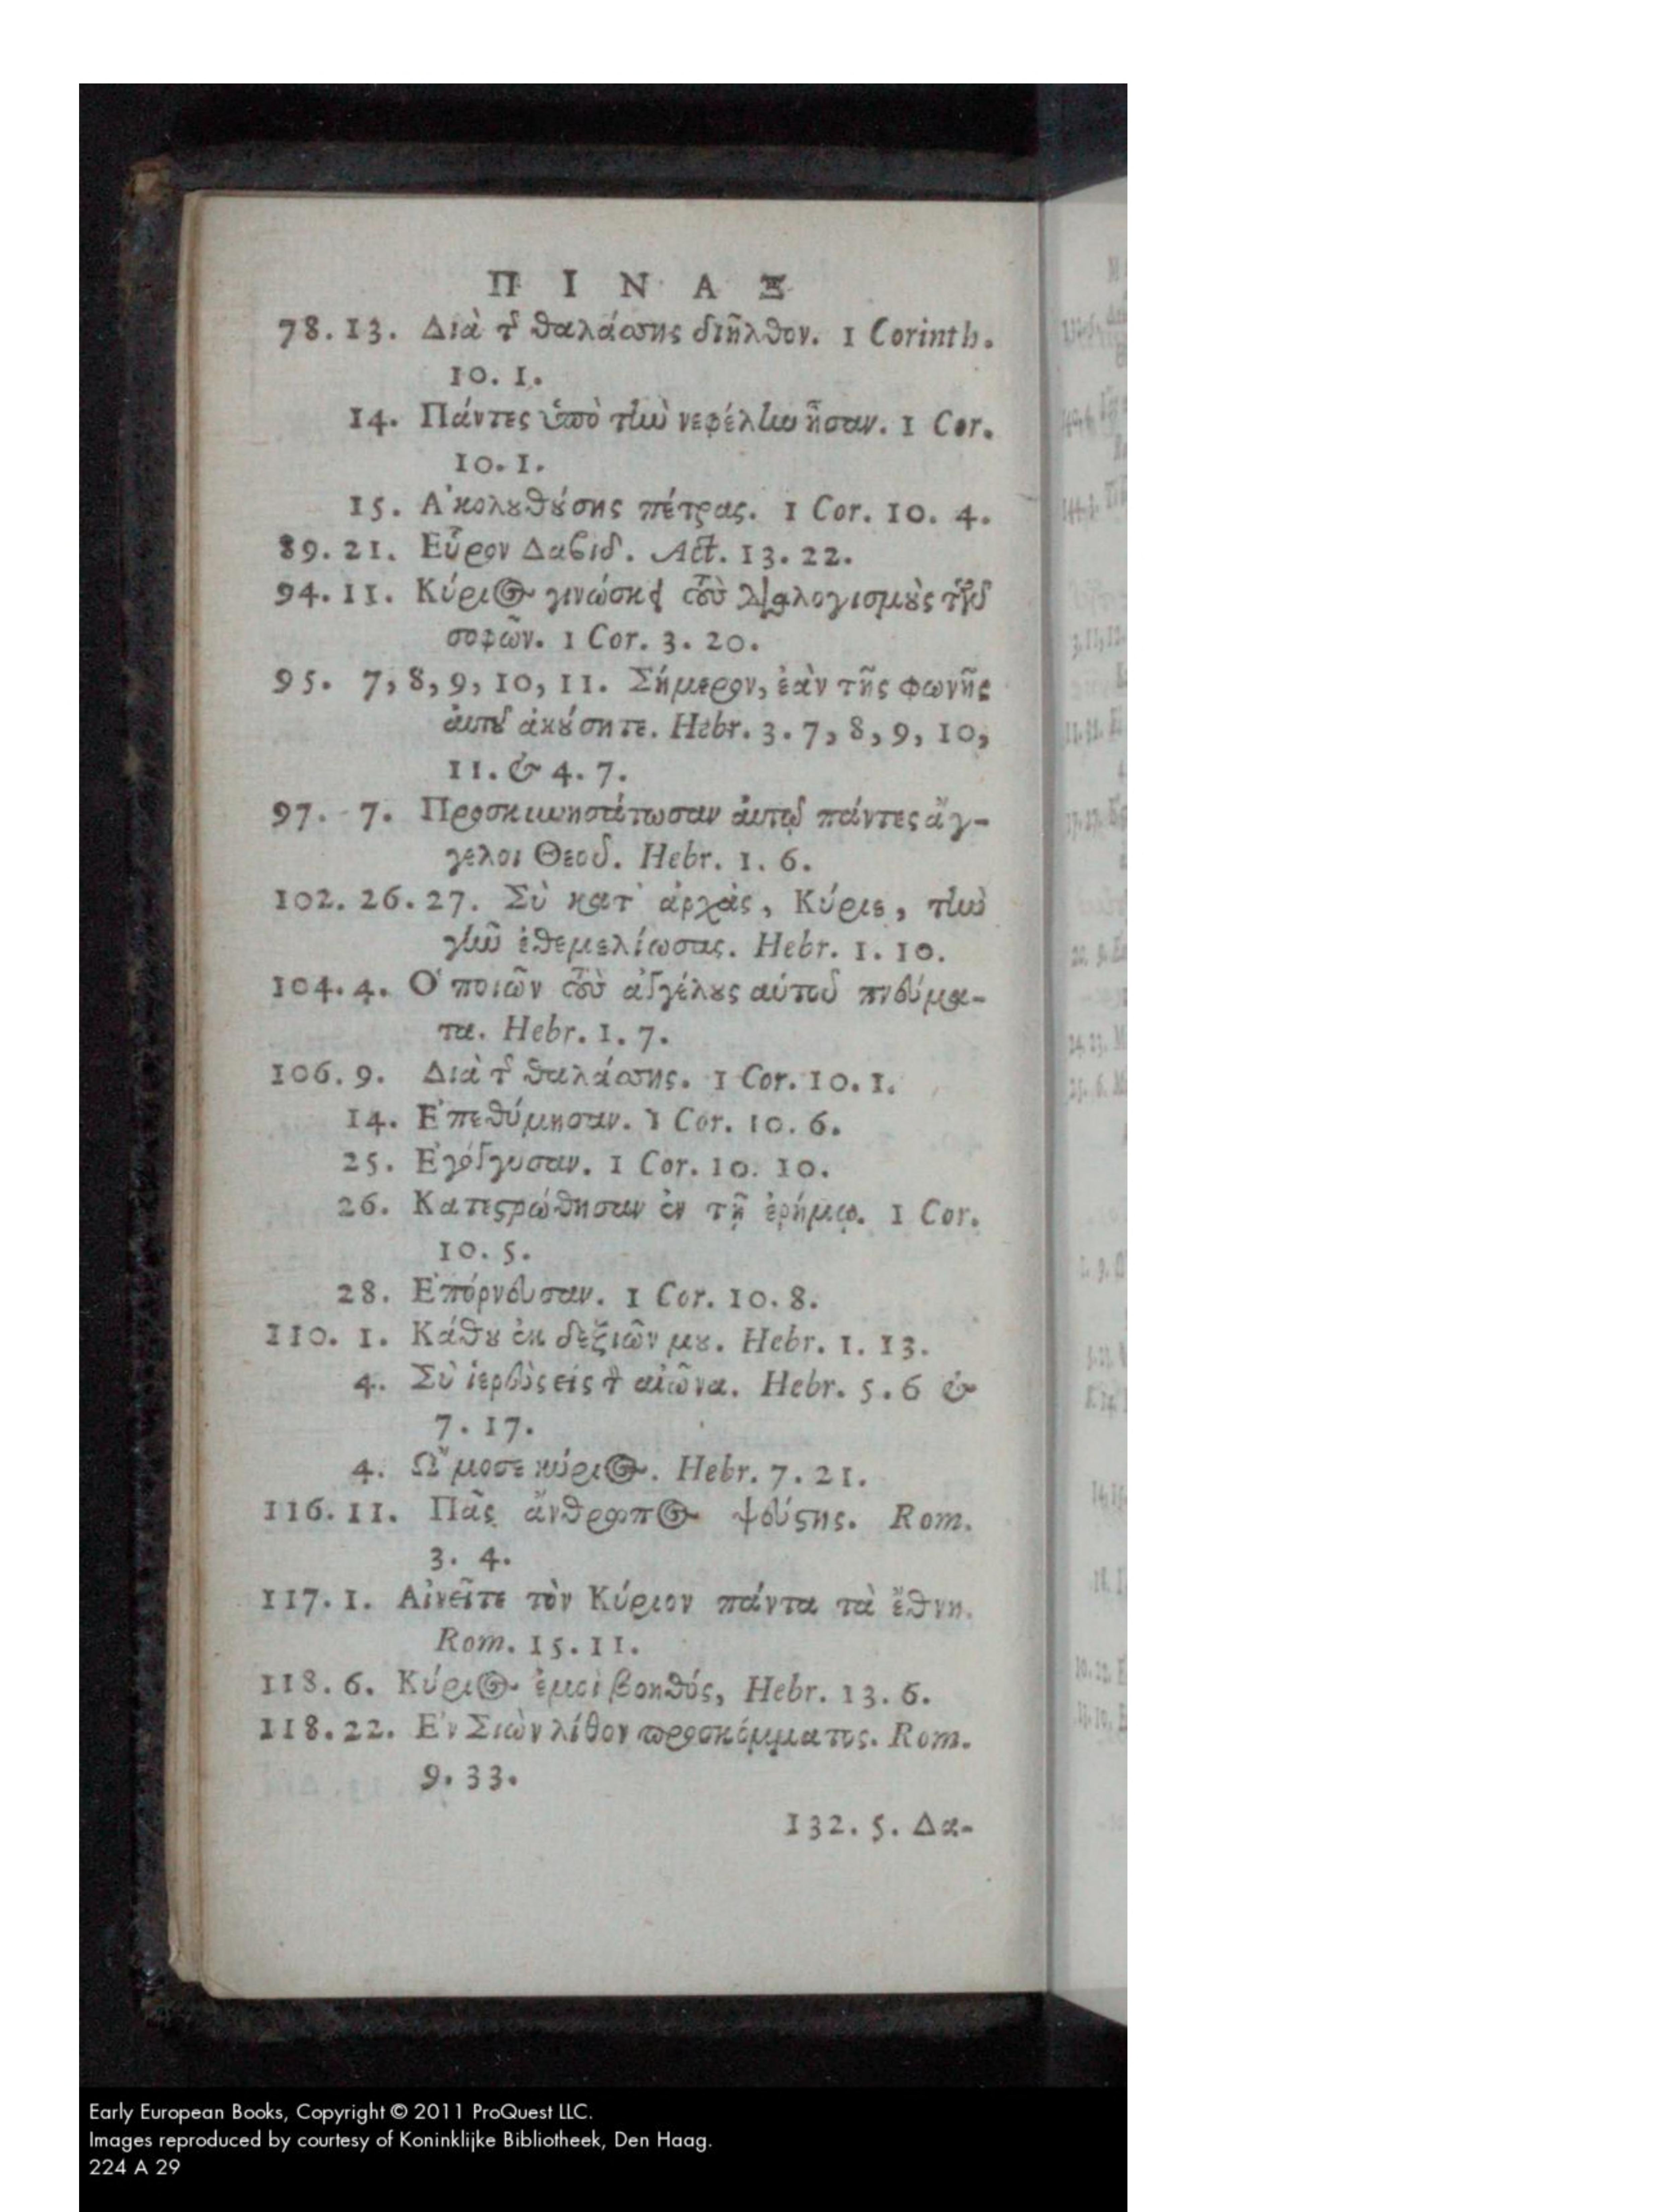 ΠΙΝΑΞ
78. 13. Διὰ τῆς θαλάσσης διῆλθον. 1 Corinth.
10. 1.
14. Πάντες ὑπὸ τὴν νεφέλην ἦσαν. 1 Cor.
10. 1.
15. Ἀκολȣθȣ́σης πέτρας. 1 Cor. 10. 4.
89. 21. Εὗρον Δαβίδ. Act. 13. 22.
94. 11. Κύριος γινώσκει τοὺς διαλογισμȣ̀ς τῶν
σοφῶν. 1 Cor. 3. 20.
95. 7, 8, 9, 10, 11. Σήμερον, ἐὰν τῆς φωνῆς
αὐτοῦ ἀκȣ́σητε. Hebr. 3. 7, 8, 9, 10,
11. & 4. 7.
97. 7. Προσκυνησάτωσαν αὐτῷ πάντες ἄγ-
γελοι Θεοῦ. Hebr. 1. 6.
102. 26. 27. Σὺ κατ' ἀρχὰς, Κύριε, τὴν
γῆν ἐθεμελίωσας. Hebr. 1. 10.
104. 4. Ὁ ποιῶν τοὺς ἀγγέλȣς αὐτοῦ πνεύμα-
τα. Hebr. 1. 7.
106. 9. Διὰ τῆς θαλάσσης. 1 Cor. 10. 1.
14. Ἐπεθύμησαν. 1 Cor. 10. 6.
25. Ἐγόγγυσαν. 1 Cor. 10. 10.
26. Κατεστρώθησαν ἐν τῇ ἐρήμῳ. 1 Cor.
10. 5.
28. Ἐπόρνευσαν. 1 Cor. 10. 8.
110. 1. Κάθȣ ἐκ δεξιῶν μȣ. Hebr. 1. 13.
4. Σὺ ἱερεὺς εἰς τὸν αἰῶνα. Hebr. 5. 6 &
7. 17.
4. Ὤμοσε κύριος. Hebr. 7. 21.
116. 11. Πᾶς ἄνθρωπος ψεύστης. Rom.
3. 4.
117. 1. Αἰνεῖτε τὸν Κύριον πάντα τὰ ἔθνη.
Rom. 15. 11.
118. 6. Κύριος ἐμοὶ βοηθός, Hebr. 13. 6.
118. 22. Ἐν Σιὼν λίθον προσκόμματος. Rom.
9. 33.
132. 5. Δα-
Early European Books, Copyright © 2011 ProQuest LLC.
Images reproduced by courtesy of Koninklijke Bibliotheek, Den Haag.
224 A 29